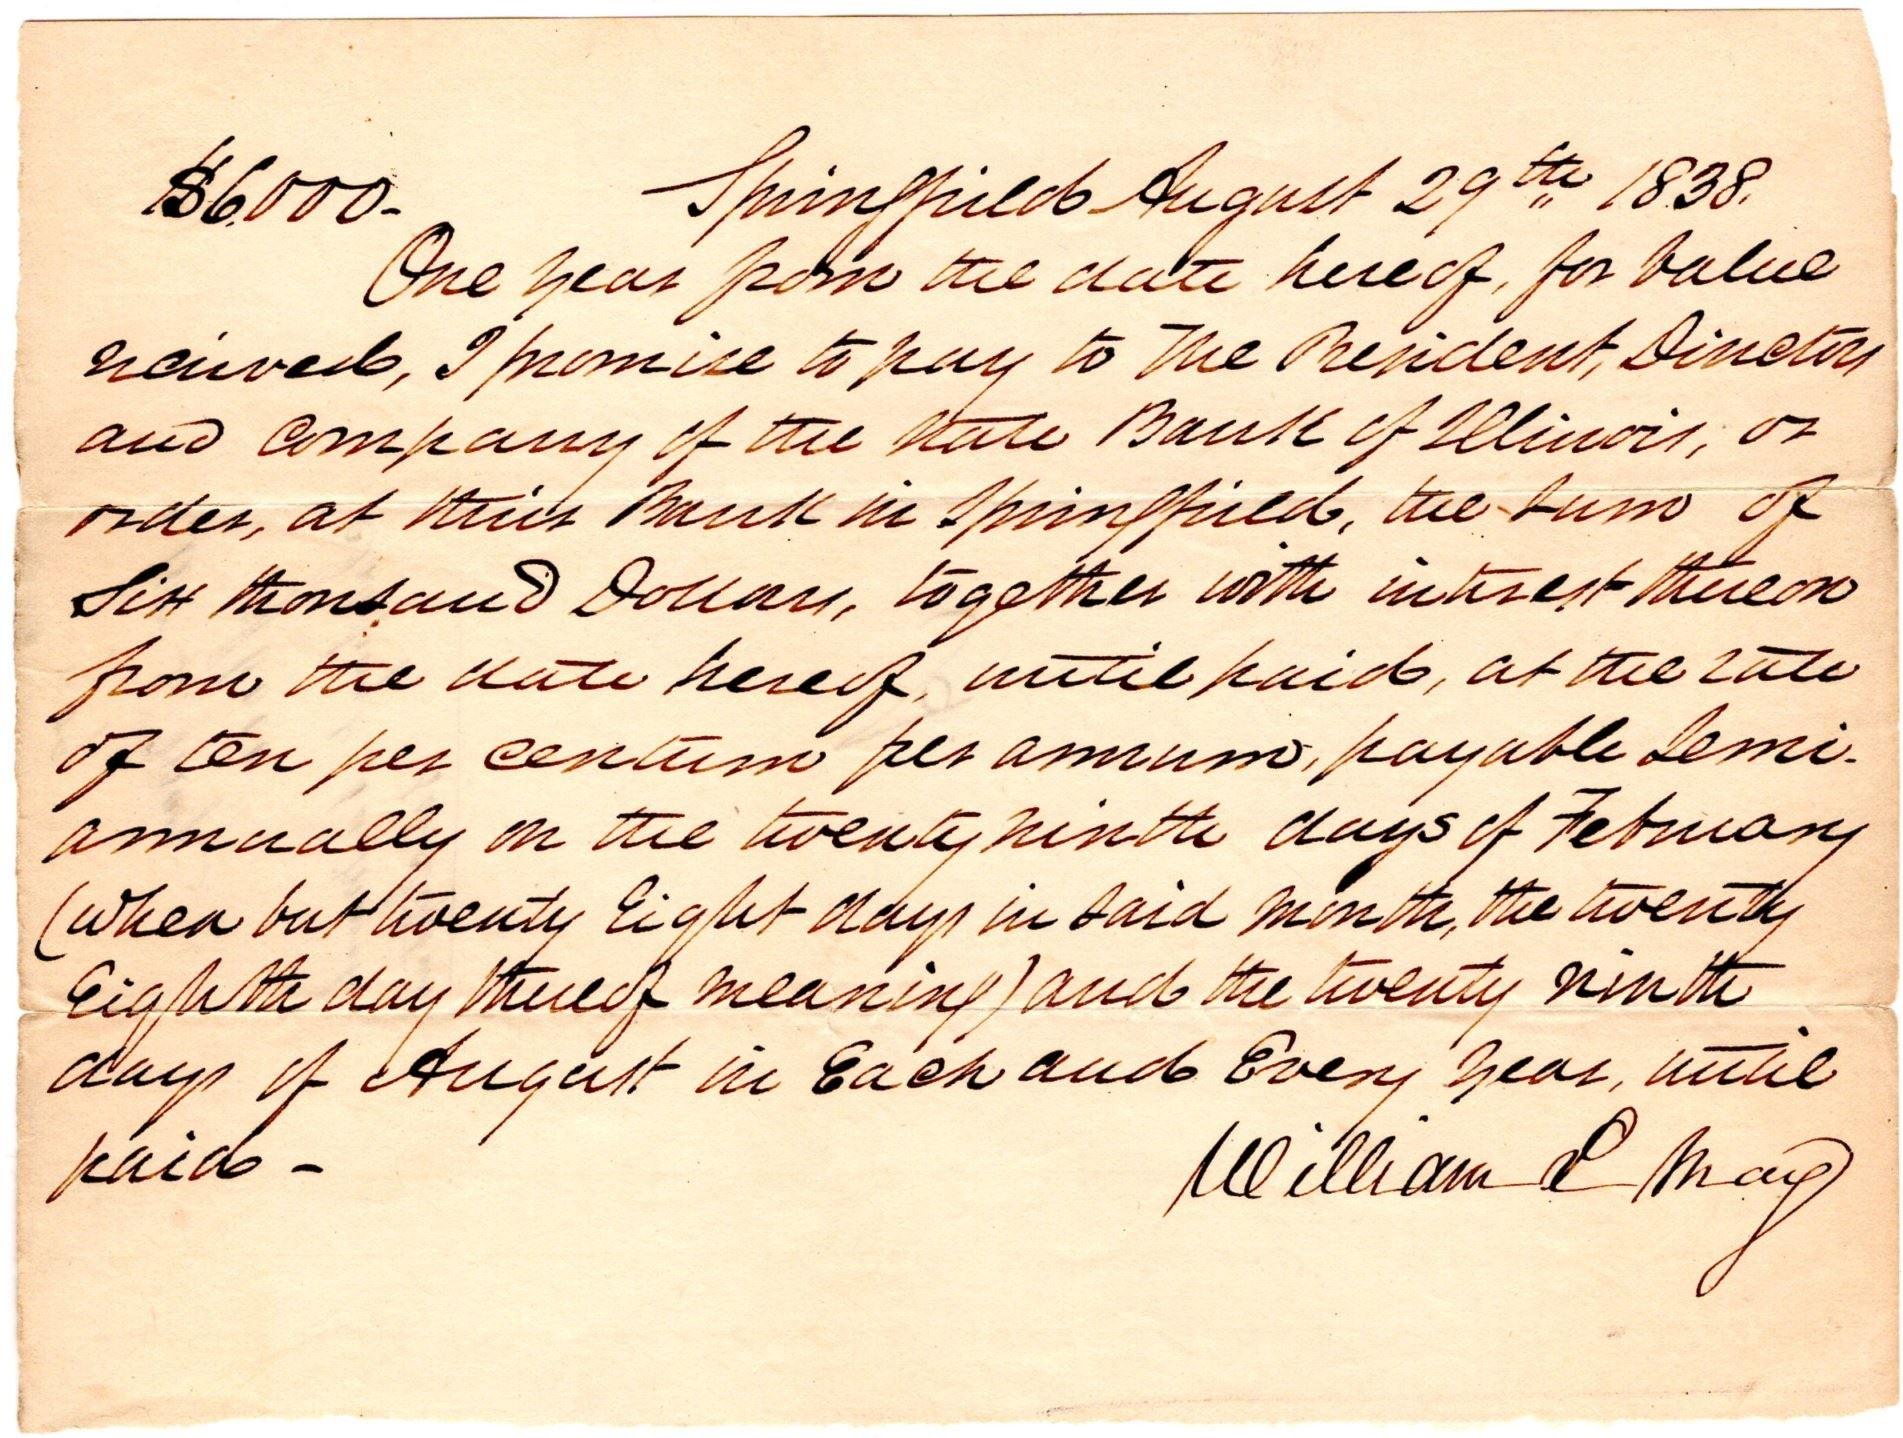 $6000- Springfield August 29th 1838.
One year from the date hereof, for value
received, I promise to pay to The President, Directors
and Company of the State Bank of Illinois, or
order, at their Bank in Springfield, the sum of
Six thousand Dollars, together with interest thereon
from the date hereof, until paid, at the rate
of ten per centum per annum, payable Semi-
annually on the twenty ninth days of February
(when but twenty Eight days in said month, the twenty
Eighth day thereof meaning) and the twenty ninth
days of August in Each and Every year, until
paid -
William L May